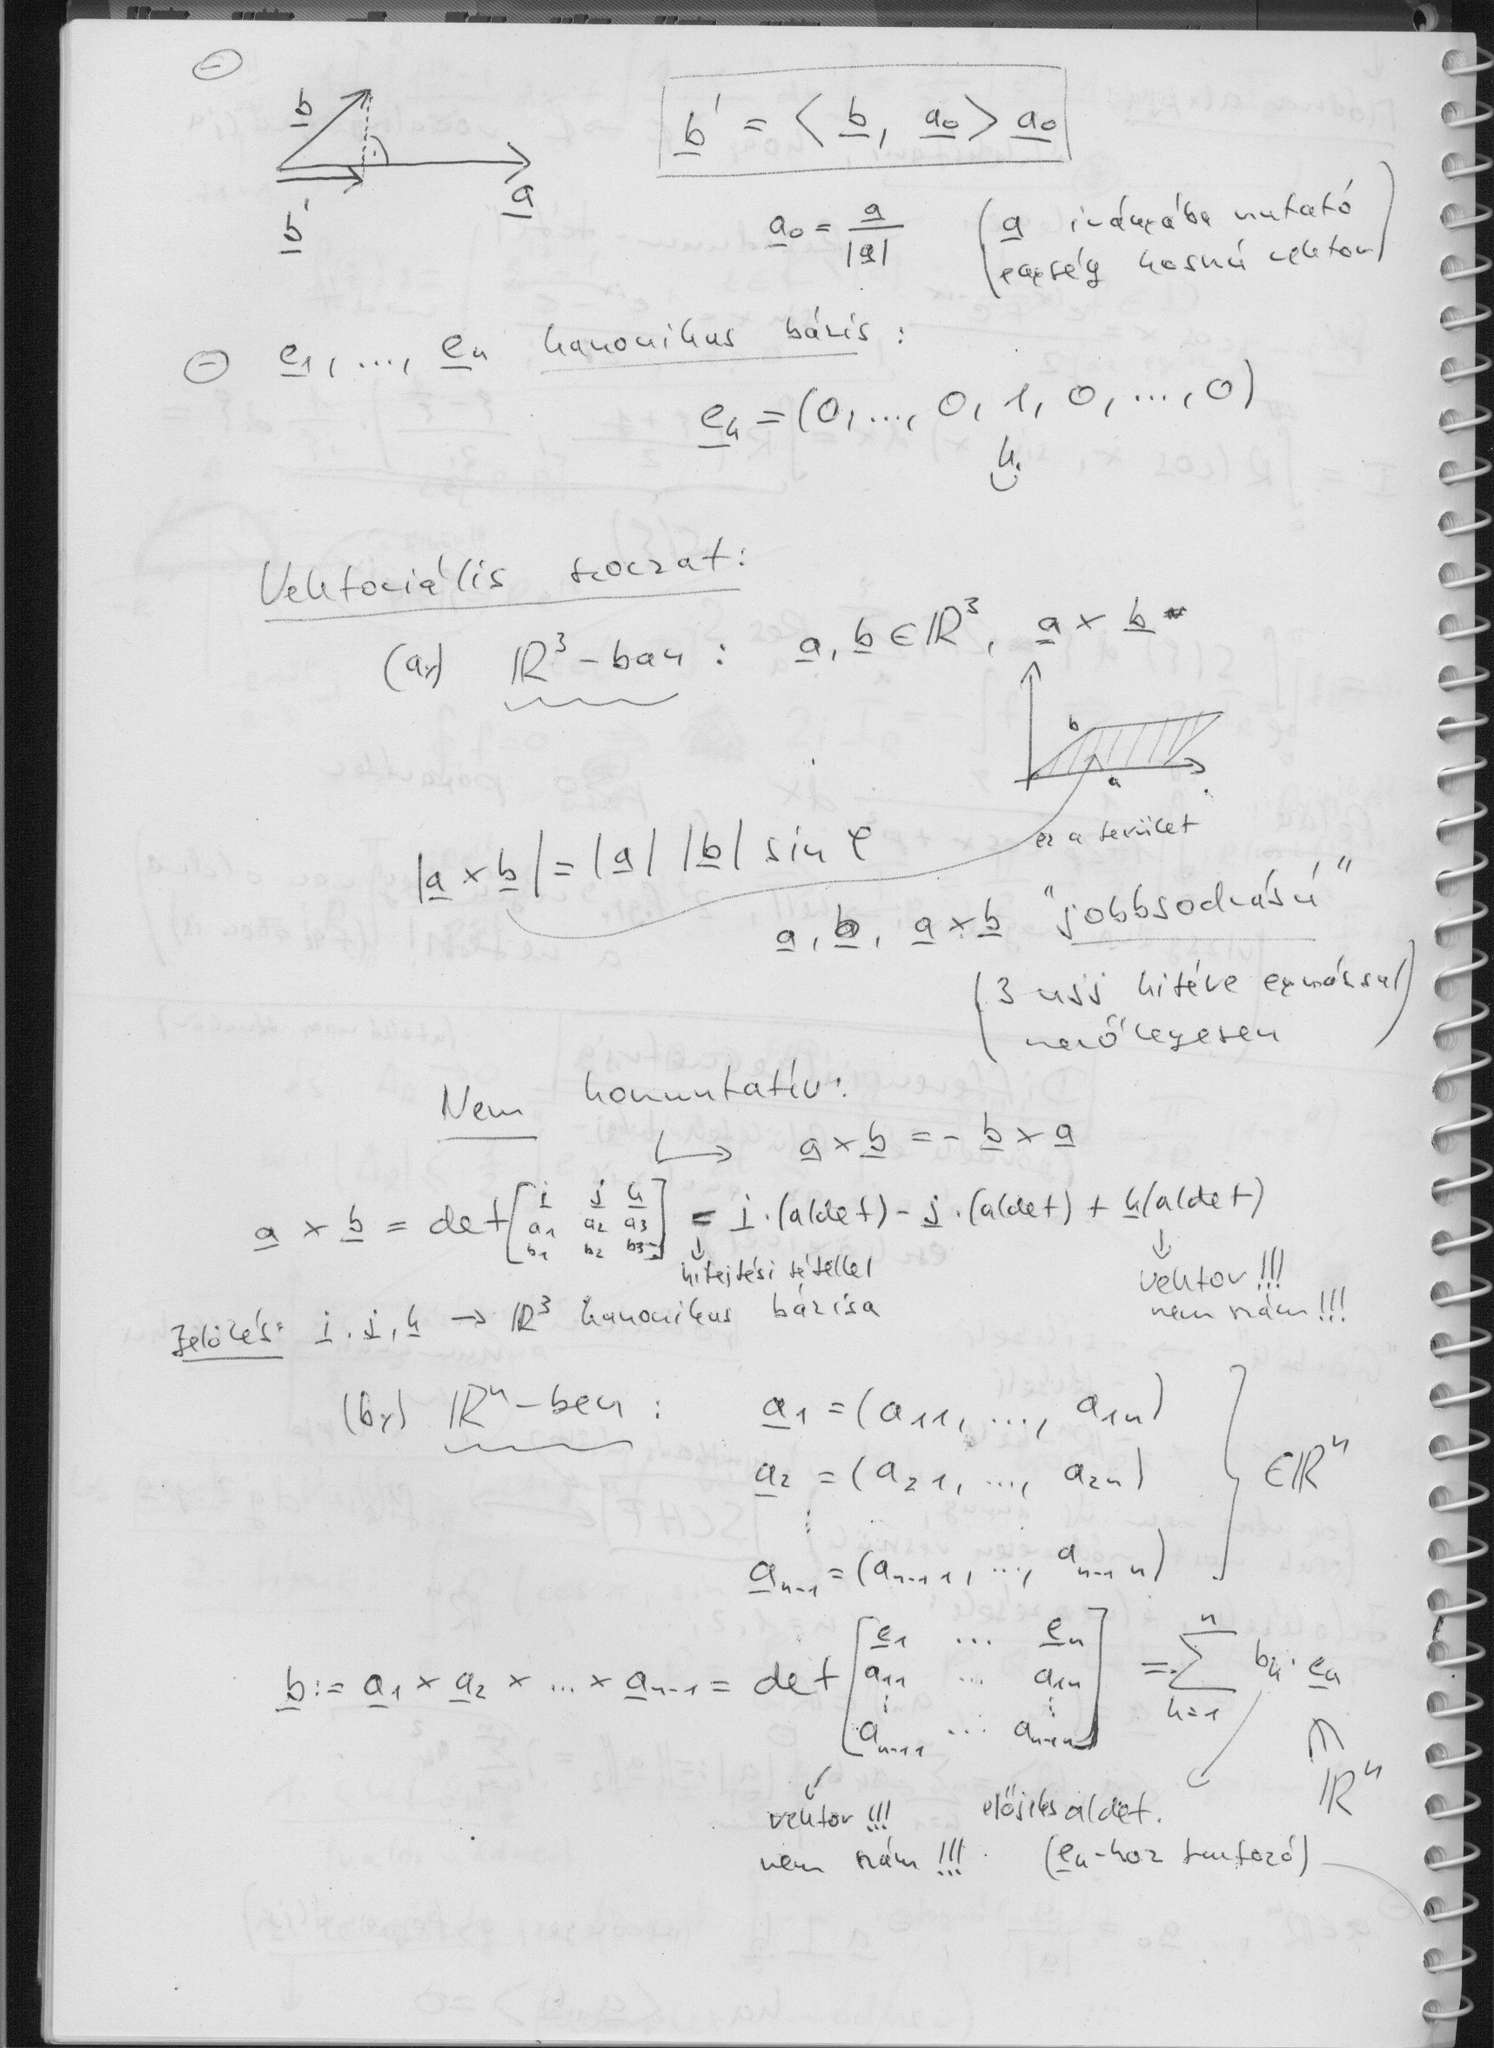 b
b' = < b, a0 > a0
a
b'
a0 = a / |a| (a irányába mutató
egység hosszú vektor)
e1, ..., en kanonikus bázis:
ek = (0, ..., 0, 1, 0, ..., 0)
k.
Vektoriális szorzat:
(a,) ℝ³-ban : a, b ∈ ℝ³, a × b
b
a
ez a terület
|a × b| = |a| |b| sin φ
a, b, a × b "jobbsodrású"
(3 ujj kitéve egymással
merőlegesen)
Nem kommutatív:
↳ a × b = - b × a
a × b = det [ i j k
a1 a2 a3
b1 b2 b3 ] = i·(aldet) - j·(aldet) + k(aldet)
↓ kifejtési tétellel
↓ vektor !!!
nem szám !!!
Jelölés: i, j, k → ℝ³ kanonikus bázisa
(b,) ℝⁿ-ben : a1 = (a11, ..., a1n)
a2 = (a21, ..., a2n)
⋮
an-1 = (an-1 1, ..., an-1 n)
} ∈ ℝⁿ
b := a1 × a2 × ... × an-1 = det [ e1 ... en
a11 ... a1n
⋮ ⋮
an-1 1 ... an-1 n ] = Σ bk · ek
n
k=1
ℝⁿ
vektor !!! előjeles aldet.
nem szám !!! (ek-hoz tartozó)